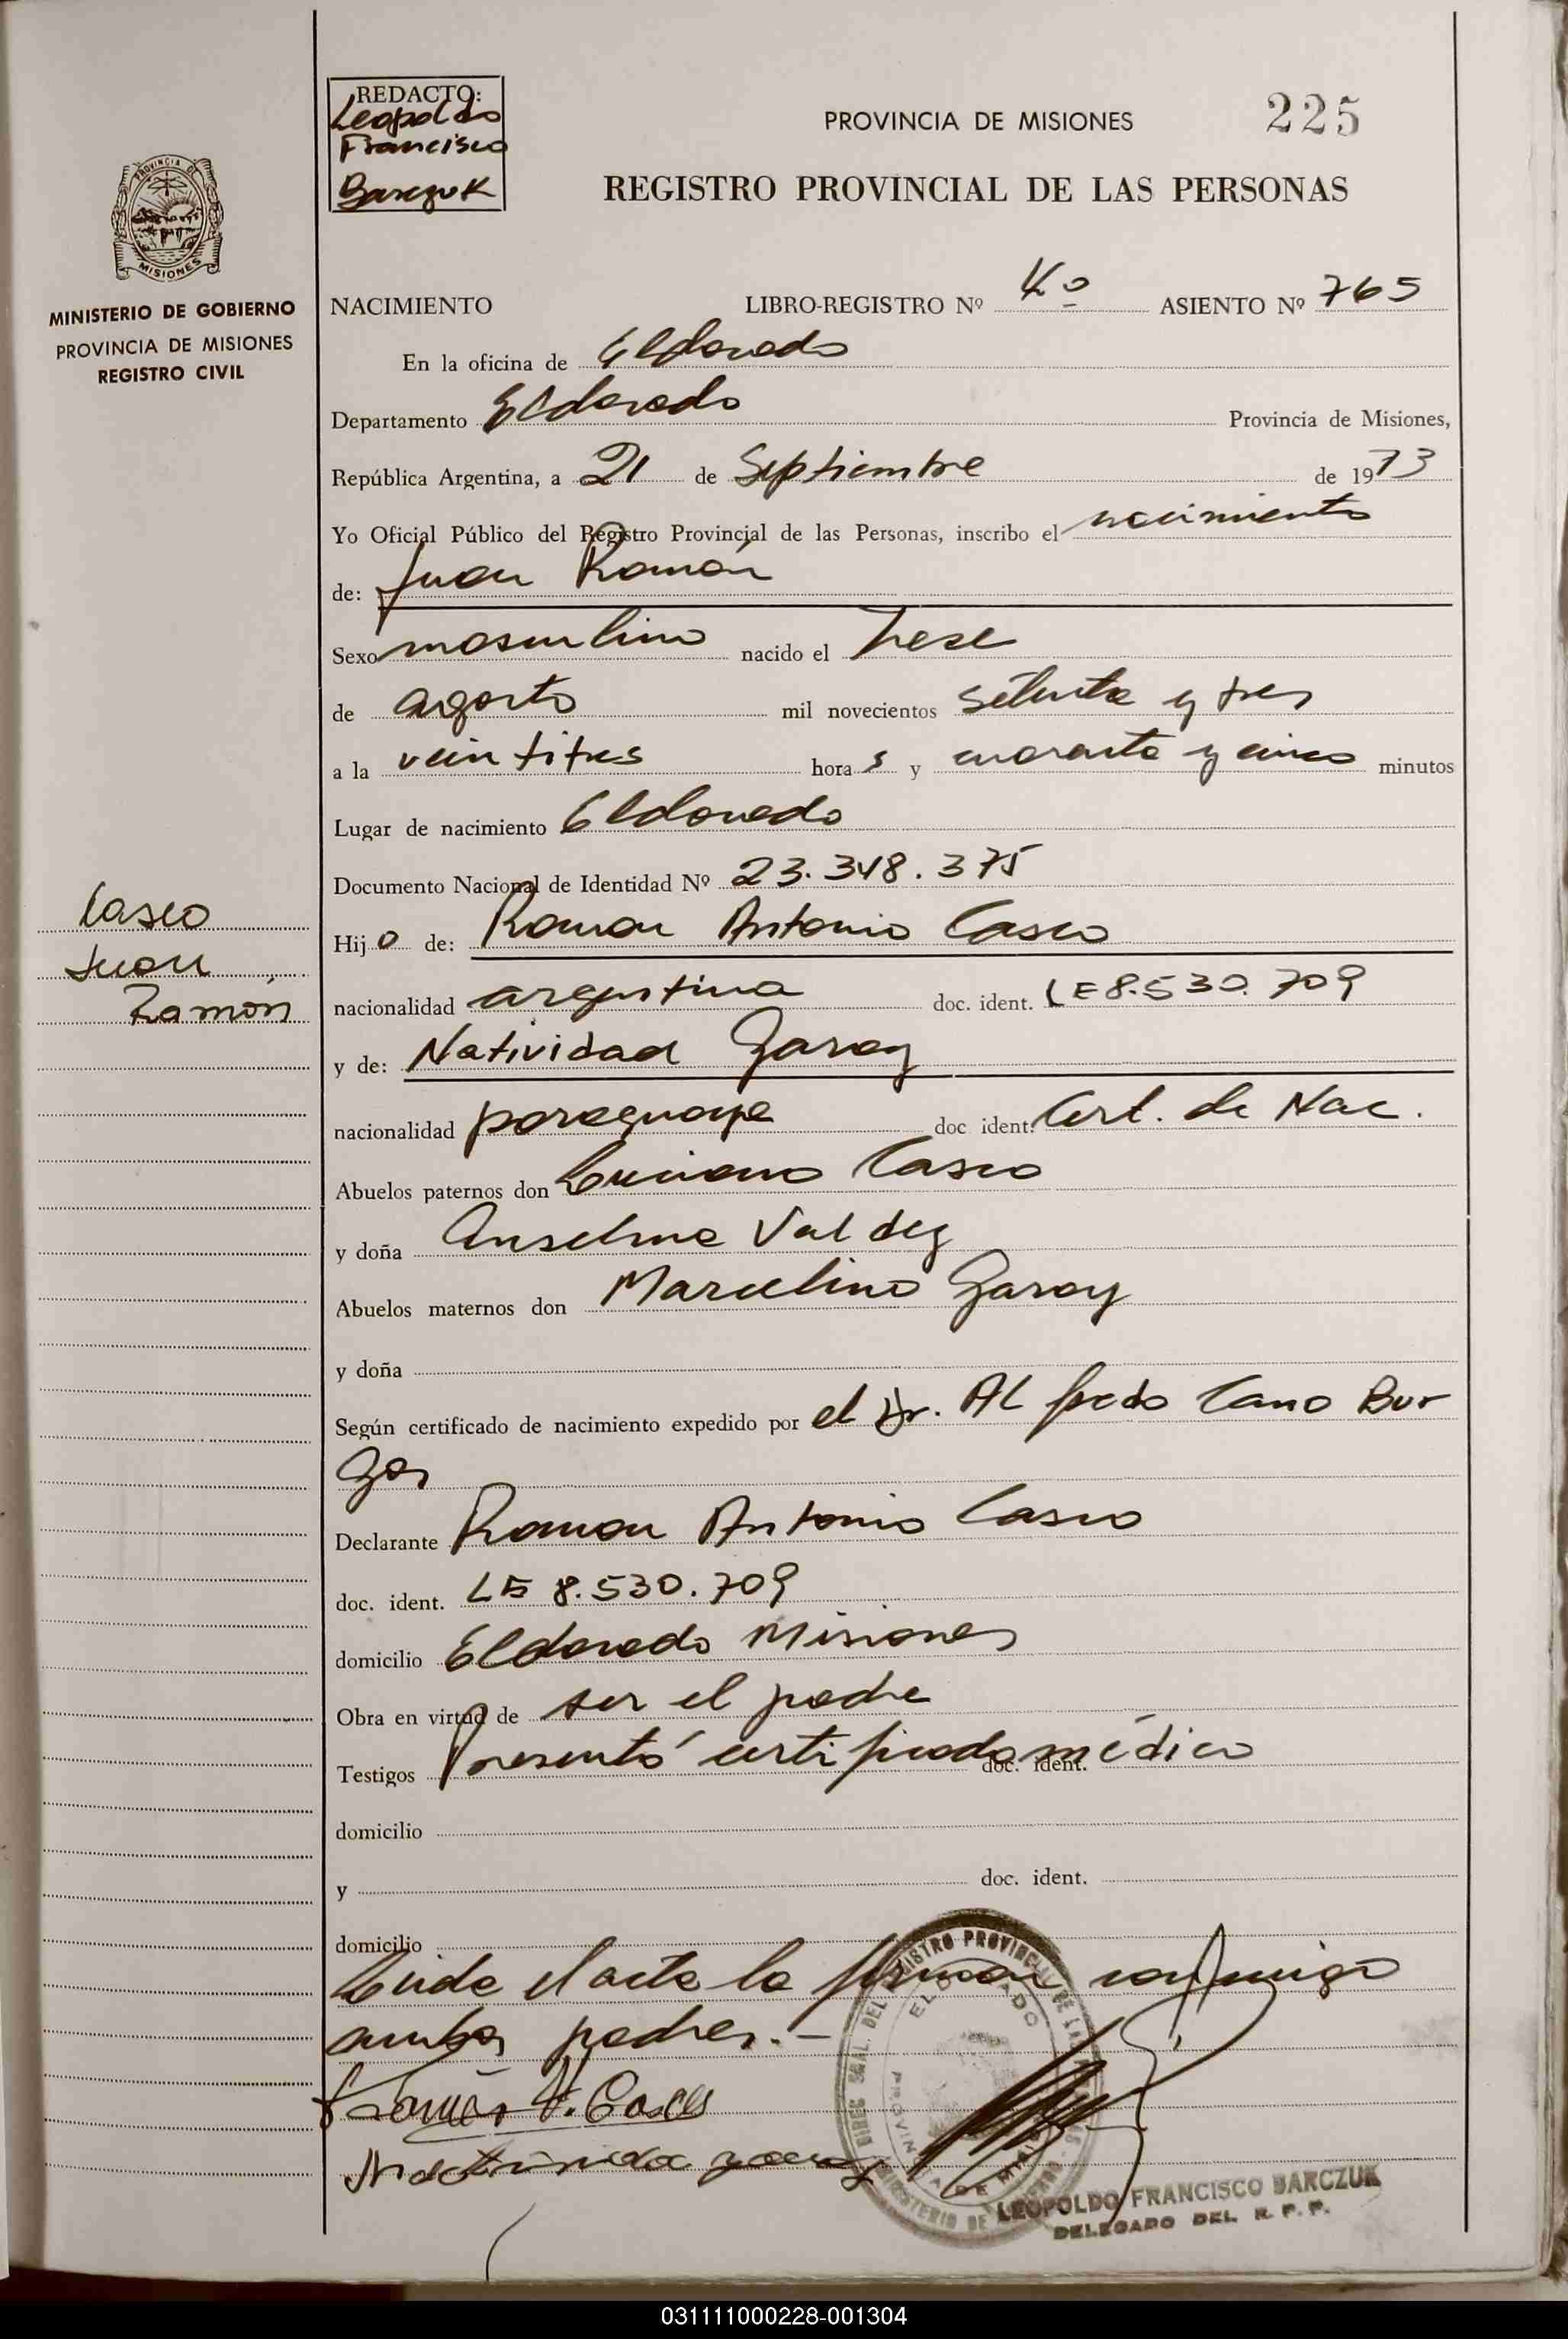 REDACTO:
Leopoldo
Francisco
Barczuk
PROVINCIA DE MISIONES
225
REGISTRO PROVINCIAL DE LAS PERSONAS
PROVINCIA DE
MISIONES
MINISTERIO DE GOBIERNO
PROVINCIA DE MISIONES
REGISTRO CIVIL
NACIMIENTO LIBRO-REGISTRO Nº 4º ASIENTO Nº 765
En la oficina de Eldorado
Departamento Eldorado Provincia de Misiones,
República Argentina, a 21 de Septiembre de 1973
Yo Oficial Público del Registro Provincial de las Personas, inscribo el nacimiento
de: Juan Ramón
Sexo masculino nacido el trese
de agosto mil novecientos setenta y tres
a la veintitres hora s y cuarenta y cinco minutos
Lugar de nacimiento Eldorado
Documento Nacional de Identidad Nº 23.348.375
Casco
Juan
Ramón
Hij o de: Ramon Antonio Casco
nacionalidad argentina doc. ident. LE 8.530.709
y de: Natividad Garay
nacionalidad paraguaya doc ident. Cert. de Nac.
Abuelos paternos don Luciano Casco
y doña Anselma Valdez
Abuelos maternos don Marcelino Garay
y doña
Según certificado de nacimiento expedido por el Dr. Alfredo Cano Bur
gos
Declarante Ramon Antonio Casco
doc. ident. LE 8.530.709
domicilio Eldorado Misiones
Obra en virtud de ser el padre
Testigos Presentó certificado médico doc. ident.
domicilio
y doc. ident.
domicilio
Leida el acta la firman conmigo
ambos padres.-
Ramón A. Casco
Natividad garay
DIREC. GRAL. DEL REGISTRO PROVINCIAL DE LAS PERSONAS
ELDORADO
PROVINCIA DE MISIONES
MINISTERIO DE GOBIERNO
LEOPOLDO FRANCISCO BARCZUK
DELEGADO DEL R. P. P.
031111000228-001304